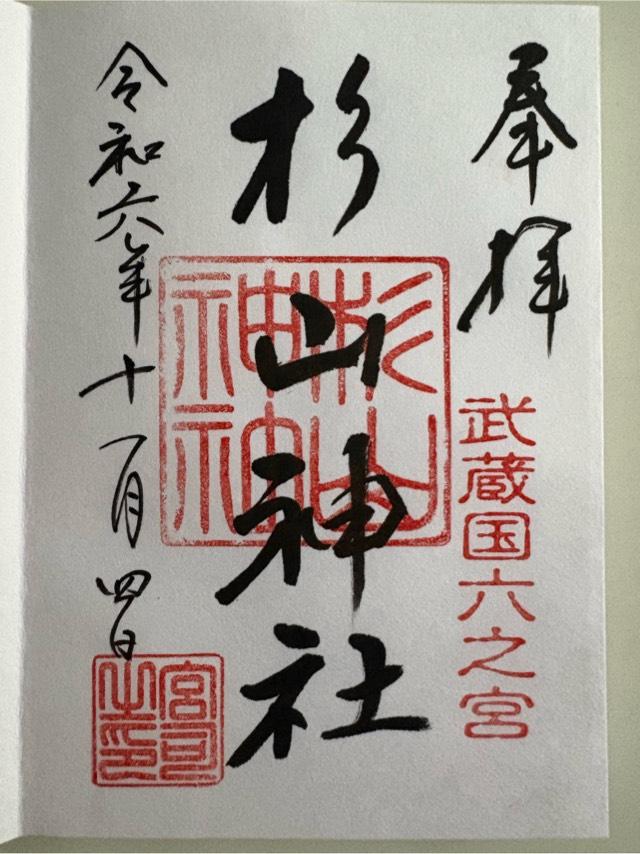 奉拝
武蔵国六之宮
杉山神社
令和六年十一月四日
宮司之印